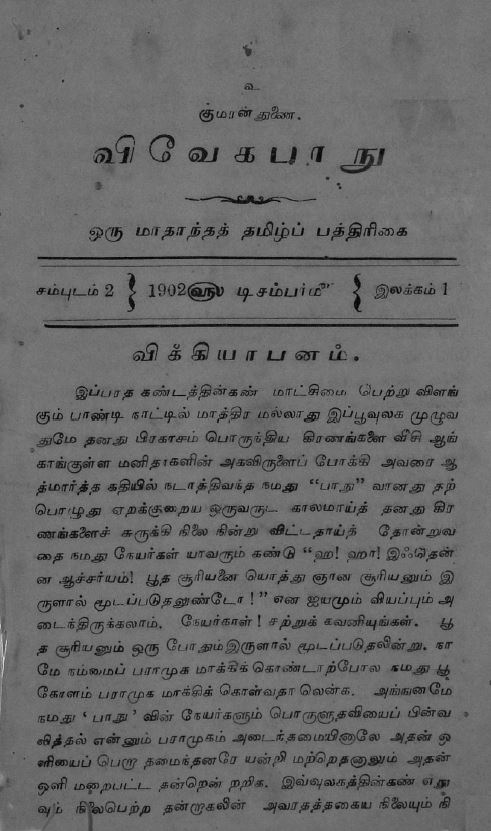 உ
குமரன் துணை.
விவேகபாநு
ஒரு மாதாந்தத் தமிழ்ப் பத்திரிகை
சம்புடம் 2 } 1902௵ டிசம்பர்மீ { இலக்கம் 1
விக்கியாபனம்.
இப்பரத கண்டத்தின்கண் மாட்சிமை பெற்று விளங்
கும் பாண்டி நாட்டில் மாத்திர மல்லாது இப்பூவுலக முழுவ
துமே தனது பிரகாசம் பொருந்திய கிரணங்களை வீசி ஆங்
காங்குள்ள மனிதர்களின் அகவிருளைப் போக்கி அவரை ஆ
த்மார்த்த கதியில் நடாத்திவந்த நமது “பாநு” வானது தற்
பொழுது ஏறக்குறைய ஒருவருட காலமாய்த் தனது கிர
ணங்களைச் சுருக்கி நிலை நின்று விட்டதாய்த் தோன்றுவ
தை நமது நேயர்கள் யாவரும் கண்டு “ஹ! ஹா! இஃதென்
ன ஆச்சர்யம்! பூத சூரியனை யொத்து ஞான சூரியனும் இ
ருளால் மூடப்படுதலுண்டோ!” என ஐயமும் வியப்பும் அ
டைந்திருக்கலாம். நேயர்காள்! சற்றுக் கவனியுங்கள். பூ
த சூரியனும் ஒரு போதும்இருளால் மூடப்படுதலின்று. நா
மே நம்மைப் பராமுக மாக்கிக் கொண்டாற்போல நமது பூ
கோளம் பராமுக மாக்கிக் கொள்வதா லென்க. அங்ஙனமே
நமது ‘பாநு’ வின் நேயர்களும் பொருளுதவியைப் பின்வ
லித்தல் என்னும் பராமுகம் அடைந்தமையினாலே அதன் ஒ
ளியைப் பெறா தமைந்தனரே யன்றி மற்றெதனாலும் அதன்
ஒளி மறைபட்ட தன்றென் றறிக. இவ்வுலகத்தின்கண் எது
வும் நிலைபெற்ற தன்றாகலின் அவரதத்தகைய நிலையும் நி